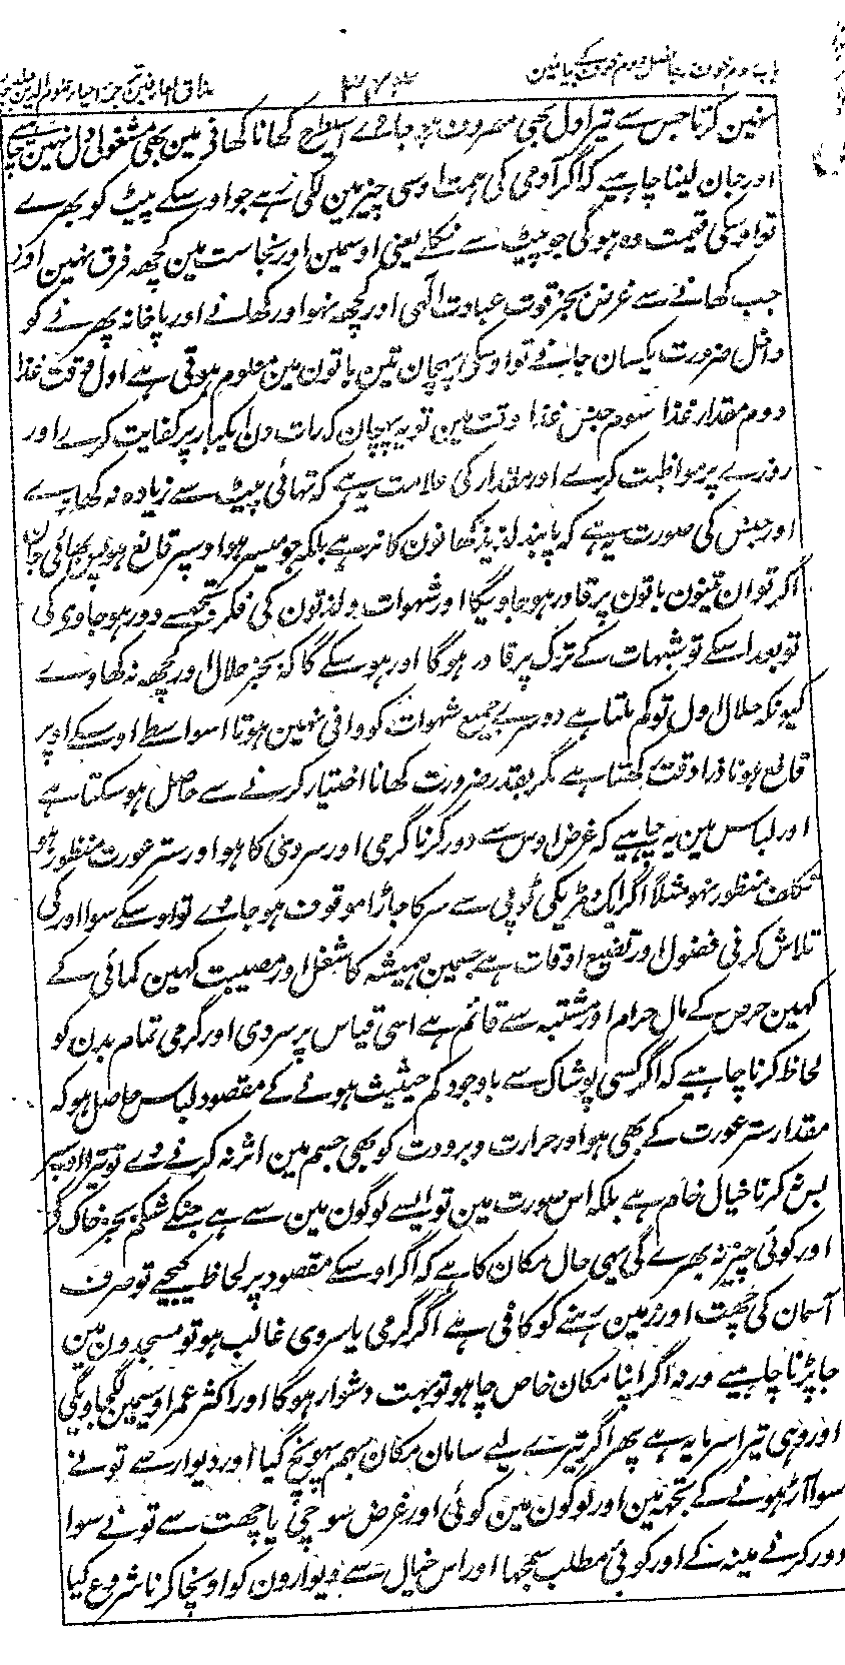 ۳۷۳
نہین کرتا جس سے تیرا دل بھی مصروف ہو جاوے اسیطرح کھانا کھانے مین بھی مشغولی دل نہین چاہیے
اور جان لینا چاہیے کہ اگر آدمی کی ہمت اوسی چیز مین لگی رہے جو اوسکے پیٹ کو بھرے
تو اوسکی قیمت وہ ہوگی جو پیٹ سے نکلے یعنی اوسمین اور نجاست مین کچھ فرق نہین اور
جب کھانے سے غرض بجز قوت عبادت الٰہی اور کچھ نہو اور کھانے اور پاخانہ پھرنے کو
داخل ضرورت یکسان جانے تو اوسکی پہچان تین باتون مین معلوم ہوتی ہے اول وقت غذا
دوم مقدار غذا سوم جنس غذا وقت مین تو یہ پہچان کہ رات دن مین یکبار پر کفایت کرے اور
روزے پر مواظبت کرے اور مقدار کی علامت یہ ہے کہ تہائی پیٹ سے زیادہ نہ کھاوے
اور جنس کی صورت یہ ہے کہ پابند لذیذ کھانون کا نرہے بلکہ جو میسر ہو اوسپر قانع ہو پس بھائی جان
اگر تو ان تینون باتون پر قادر ہو جاویگا اور شہوات و لذتون کی فکر تجھسے دور ہو جاوے گی
تو بعد اسکے تو شبہات کے ترک پر قادر ہوگا اور ہو سکے گا کہ بجز حلال اور کچھ نہ کھاوے
کیونکہ حلال اول تو کم ملتا ہے دوسرے جمیع شہوات کو وافی نہین ہوتا اسواسطے اوسکے اوپر
قانع ہونا ذرا دقت رکھتا ہے مگر بقدر ضرورت کھانا اختیار کرنے سے حاصل ہو سکتا ہے
اور لباس مین یہ چاہیے کہ غرض اوس سے دور کرنا گرمی اور سردی کا ہو اور ستر عورت منظور ہو
تکلف منظور نہو مثلاً اگر ایک ٹکے کی ٹوپی سے سر کا جاڑا موقوف ہو جاوے تو اوسکے سوا اور کی
تلاش کرنی فضول اور تضیع اوقات ہے جسمین ہمیشہ کا شغل اور مصیبت کہین کمائی کے
کہین حرص کے مال حرام اور مشتبہ سے قائم ہے اسی قیاس پر سردی اور گرمی تمام بدن کو
لحاظ کرنا چاہیے کہ اگر کسی پوشاک سے باوجود کم حیثیت ہونے کے مقصود لباس حاصل ہو کہ
مقدار ستر عورت کے بھی ہو اور حرارت و برودت کو بھی جسم مین اثر نہ کرنے دے تو تیرا اوسپر
بس نکرنا خیال خام ہے بلکہ اس صورت مین تو ایسے لوگون مین سے ہے جنکے شکم بجز خاک کے
اور کوئی چیز نہ بھرے گی یہی حال مکان کا ہے کہ اگر اوسکے مقصود پر لحاظ کیجیے تو صرف
آسمان کی چھت اور زمین رہنے کو کافی ہے اگر گرمی یا سردی غالب ہو تو مسجدون مین
جا پڑنا چاہیے ورنہ اگر اپنا مکان خاص چاہو تو بہت دشوار ہوگا اور اکثر عمر اوسیمین لگ جاویگی
اور وہی تیرا سرمایہ ہے پھر اگر تیرے لیے سامان مکان بہم پہونچ گیا اور دیوار سے تونے
سوا آڑ ہونے کے تجھ مین اور لوگون مین کوئی اور غرض سوچی یا چھت سے تونے سوا
دور کرنے مینہ کے اور کوئی مطلب سمجھا اور اس خیال سے دیوارون کو اونچا کرنا شروع کیا